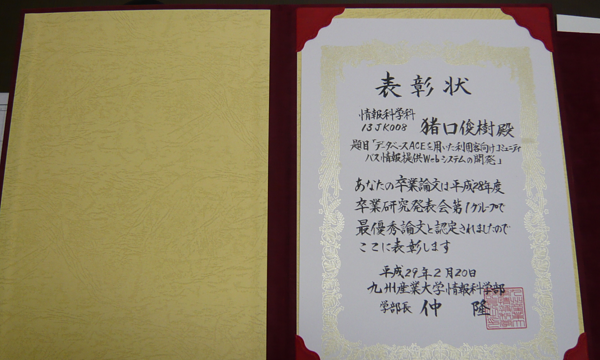 表彰状
情報科学科
13JK008 猪口俊樹殿
題目「データベースACEを用いた利用者向けコミュニティ
バス情報提供Webシステムの開発」
あなたの卒業論文は平成28年度
卒業研究発表会第1グループで
最優秀論文と認定されましたので
ここに表彰します
平成29年2月20日
九州産業大学情報科学部
学部長 仲 隆